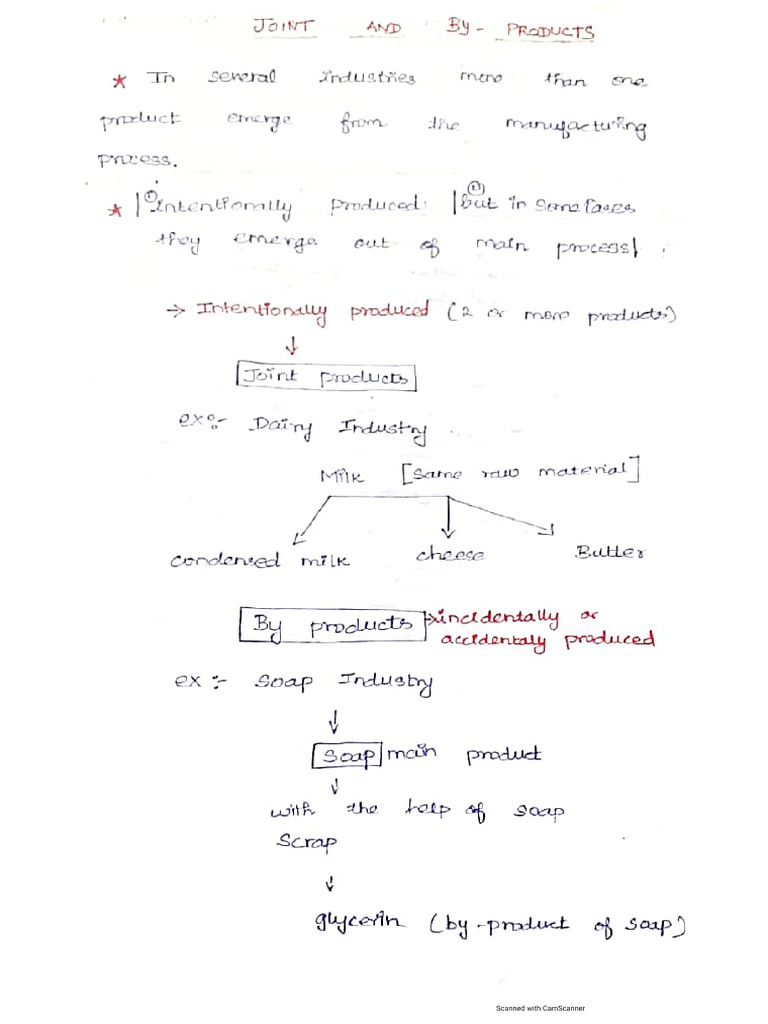 JOINT AND BY- PRODUCTS
* In several industries more than one
product emerge from the manufacturing
process.
* |① Intentionally produced |② but in some cases
they emerge out of main process| .
→ Intentionally produced (2 or more products)
↓
Joint products
ex:- Dairy Industry
Milk [same raw material]
condensed milk cheese Butter
By products → incidentally or
accidentaly produced
ex:- Soap Industry
↓
Soap main product
↓
with the help of soap
Scrap
↓
glycerin (by-product of soap)
Scanned with CamScanner